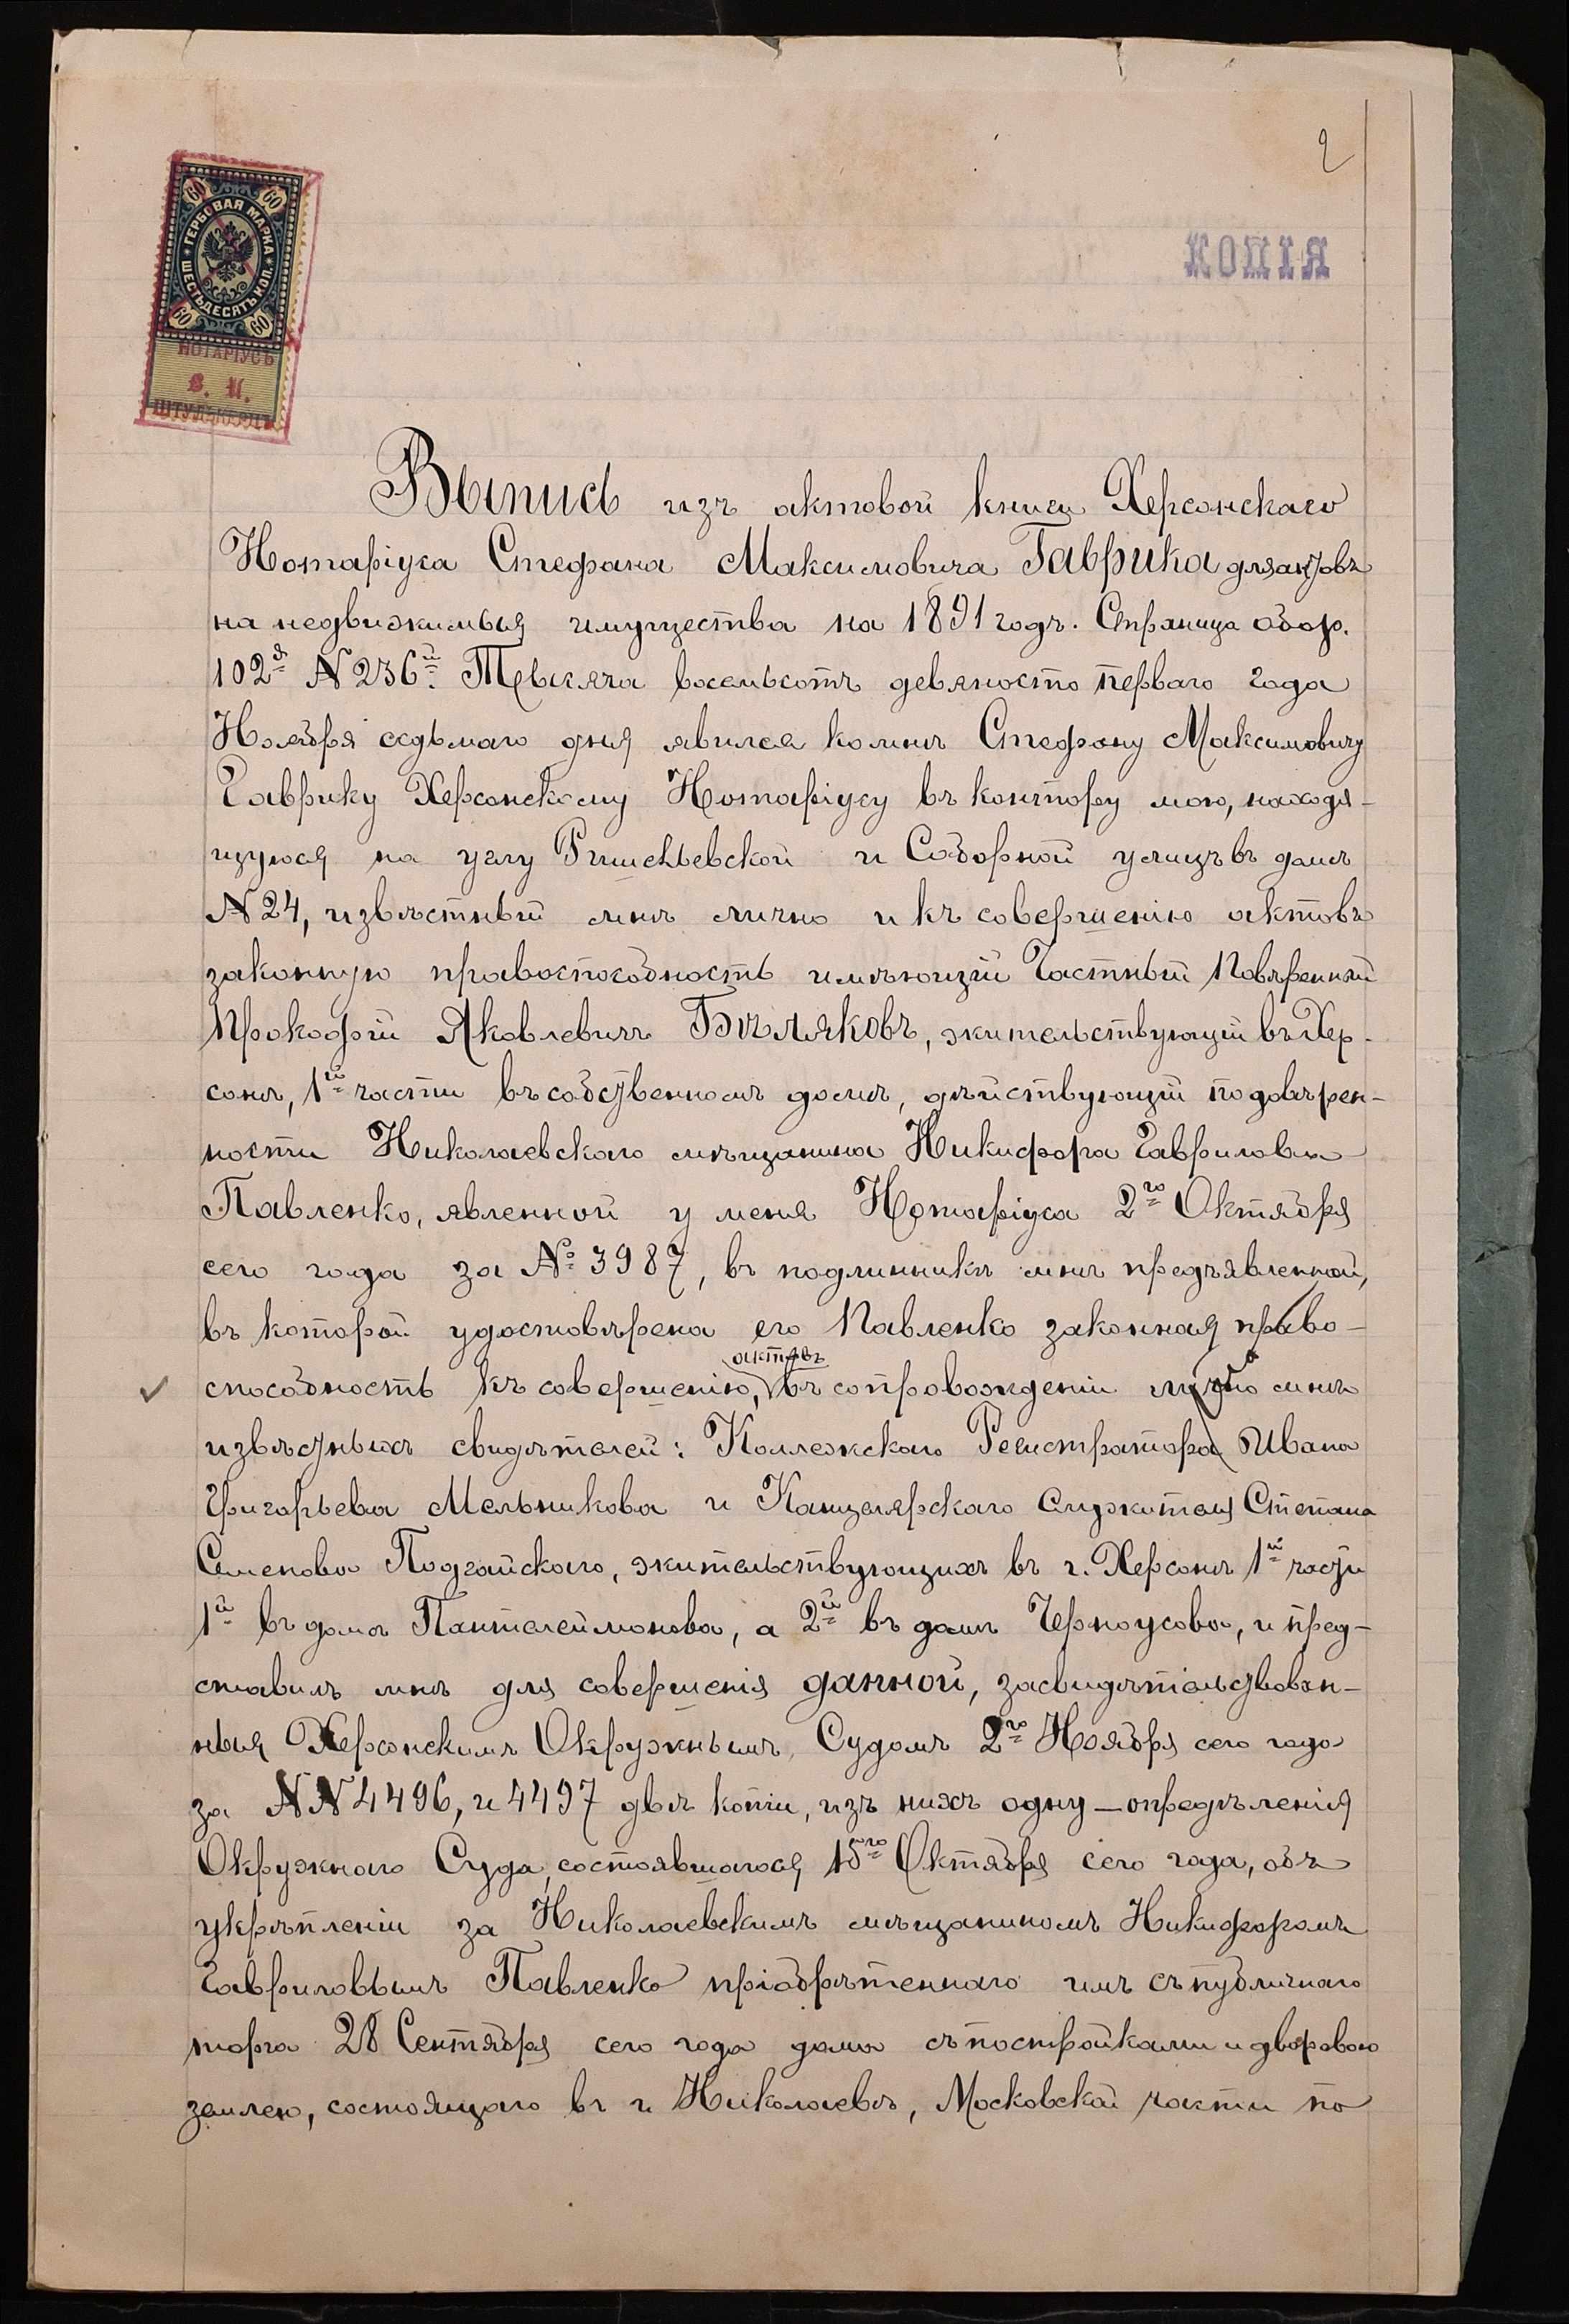 2
КОПІЯ
60 60
ГЕРБОВАЯ МАРКА
ШЕСТЬДЕСЯТЪ КОП.
60 60
НОТАРІУСЪ
В. И.
Выпись изъ актовой книги Херсонскаго
Нотаріуса Стефана Максимовича Гаврика для актовъ
на недвижимыя имущества на 1891 годъ. Страница обор.
102я N 236й. Тысяча восемьсотъ девяносто перваго года
Ноября седьмаго дня явился ко мнѣ Стефану Максимовичу
Гаврику Херсонскому Нотаріусу въ контору мою, находя-
щуюся на углу Ришельевской и Соборной улицъ въ домѣ
N 24, извѣстный мнѣ лично и къ совершенію актовъ
законную правоспособность имѣющій Частный Повѣренный
Прокофій Яковлевичъ Бѣляковъ, жительствующій въ Хер-
сонѣ, 1й части въ собственномъ домѣ, дѣйствующій по довѣрен-
ности Николаевскаго мѣщанина Никифора Гаврилова
Павленко, явленной у меня Нотаріуса 2го Октября
сего года за № 3987, въ подлинникѣ мнѣ предъявленной,
въ которой удостовѣрена его Павленко законная право-
актовъ
способность къ совершенію, въ сопровожденіи лично мнѣ
извѣстныхъ свидѣтелей: Коллежскаго Регистратора Ивана
Григорьева Мельникова и Канцелярскаго Служителя Степана
Семенова Подгайскаго, жительствующихъ въ г. Херсонѣ 1й части
1й въ домѣ Пантелеймонова, а 2й въ домѣ Черноусова, и пред-
ставилъ мнѣ для совершенія данной, засвидѣтельствован-
ныя Херсонскимъ Окружнымъ Судомъ 2го Ноября сего года
за NN 4496, и 4497 двѣ копіи, изъ нихъ одну — опредѣленія
Окружнаго Суда, состоявшагося 15го Октября сего года, объ
укрѣпленіи за Николаевскимъ мѣщаниномъ Никифоромъ
Гавриловымъ Павленко пріобрѣтеннаго имъ съ публичнаго
торга 28 Сентября сего года дома съ постройками и дворовою
землею, состоящаго въ г. Николаевѣ, Московской части по